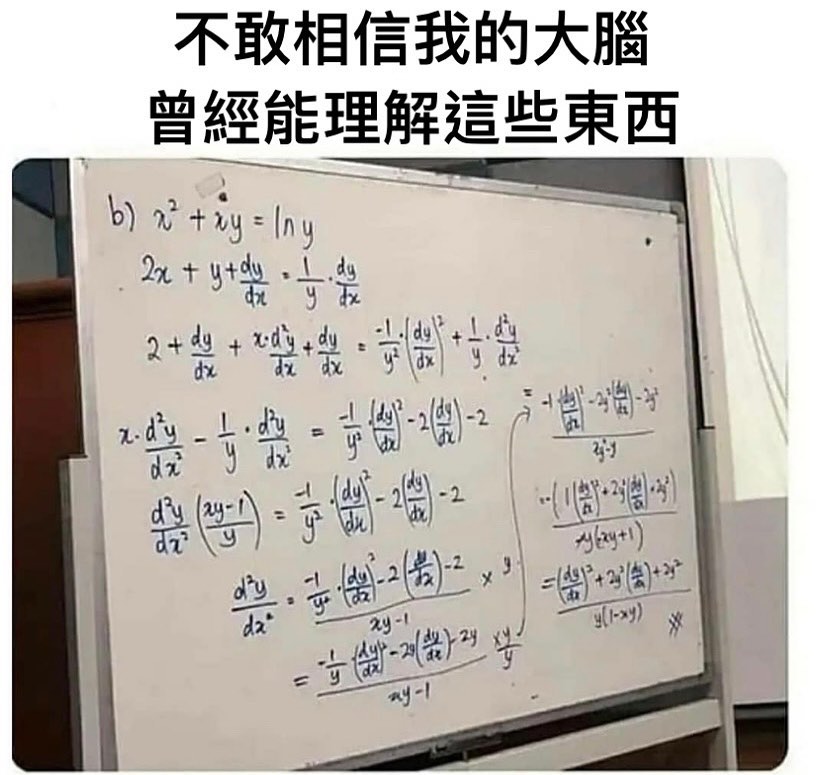 不敢相信我的大腦
曾經能理解這些東西
b) x² + xy = ln y
2x + y + dy/dx = 1/y · dy/dx
2 + dy/dx + x·d²y/dx + dy/dx = -1/y² · (dy/dx)² + 1/y · d²y/dx²
x · d²y/dx² - 1/y · d²y/dx² = -1/y² · (dy/dx)² - 2(dy/dx) - 2
d²y/dx² ((xy-1)/y) = -1/y² · (dy/dx)² - 2(dy/dx) - 2
d²y/dx² = (-1/y² · (dy/dx)² - 2(dy/dx) - 2)/(xy-1) × y
= (-1/y · (dy/dx)² - 2y(dy/dx) - 2y)/(xy-1) × y/y
= (-1(dy/dx)² - 2y²(dy/dx) - 2y²)/
= -(1(dy/dx)² + 2y²(dy/dx) + 2y²)/-y(-xy+1)
= ((dy/dx)² + 2y²(dy/dx) + 2y²)/y(1-xy)